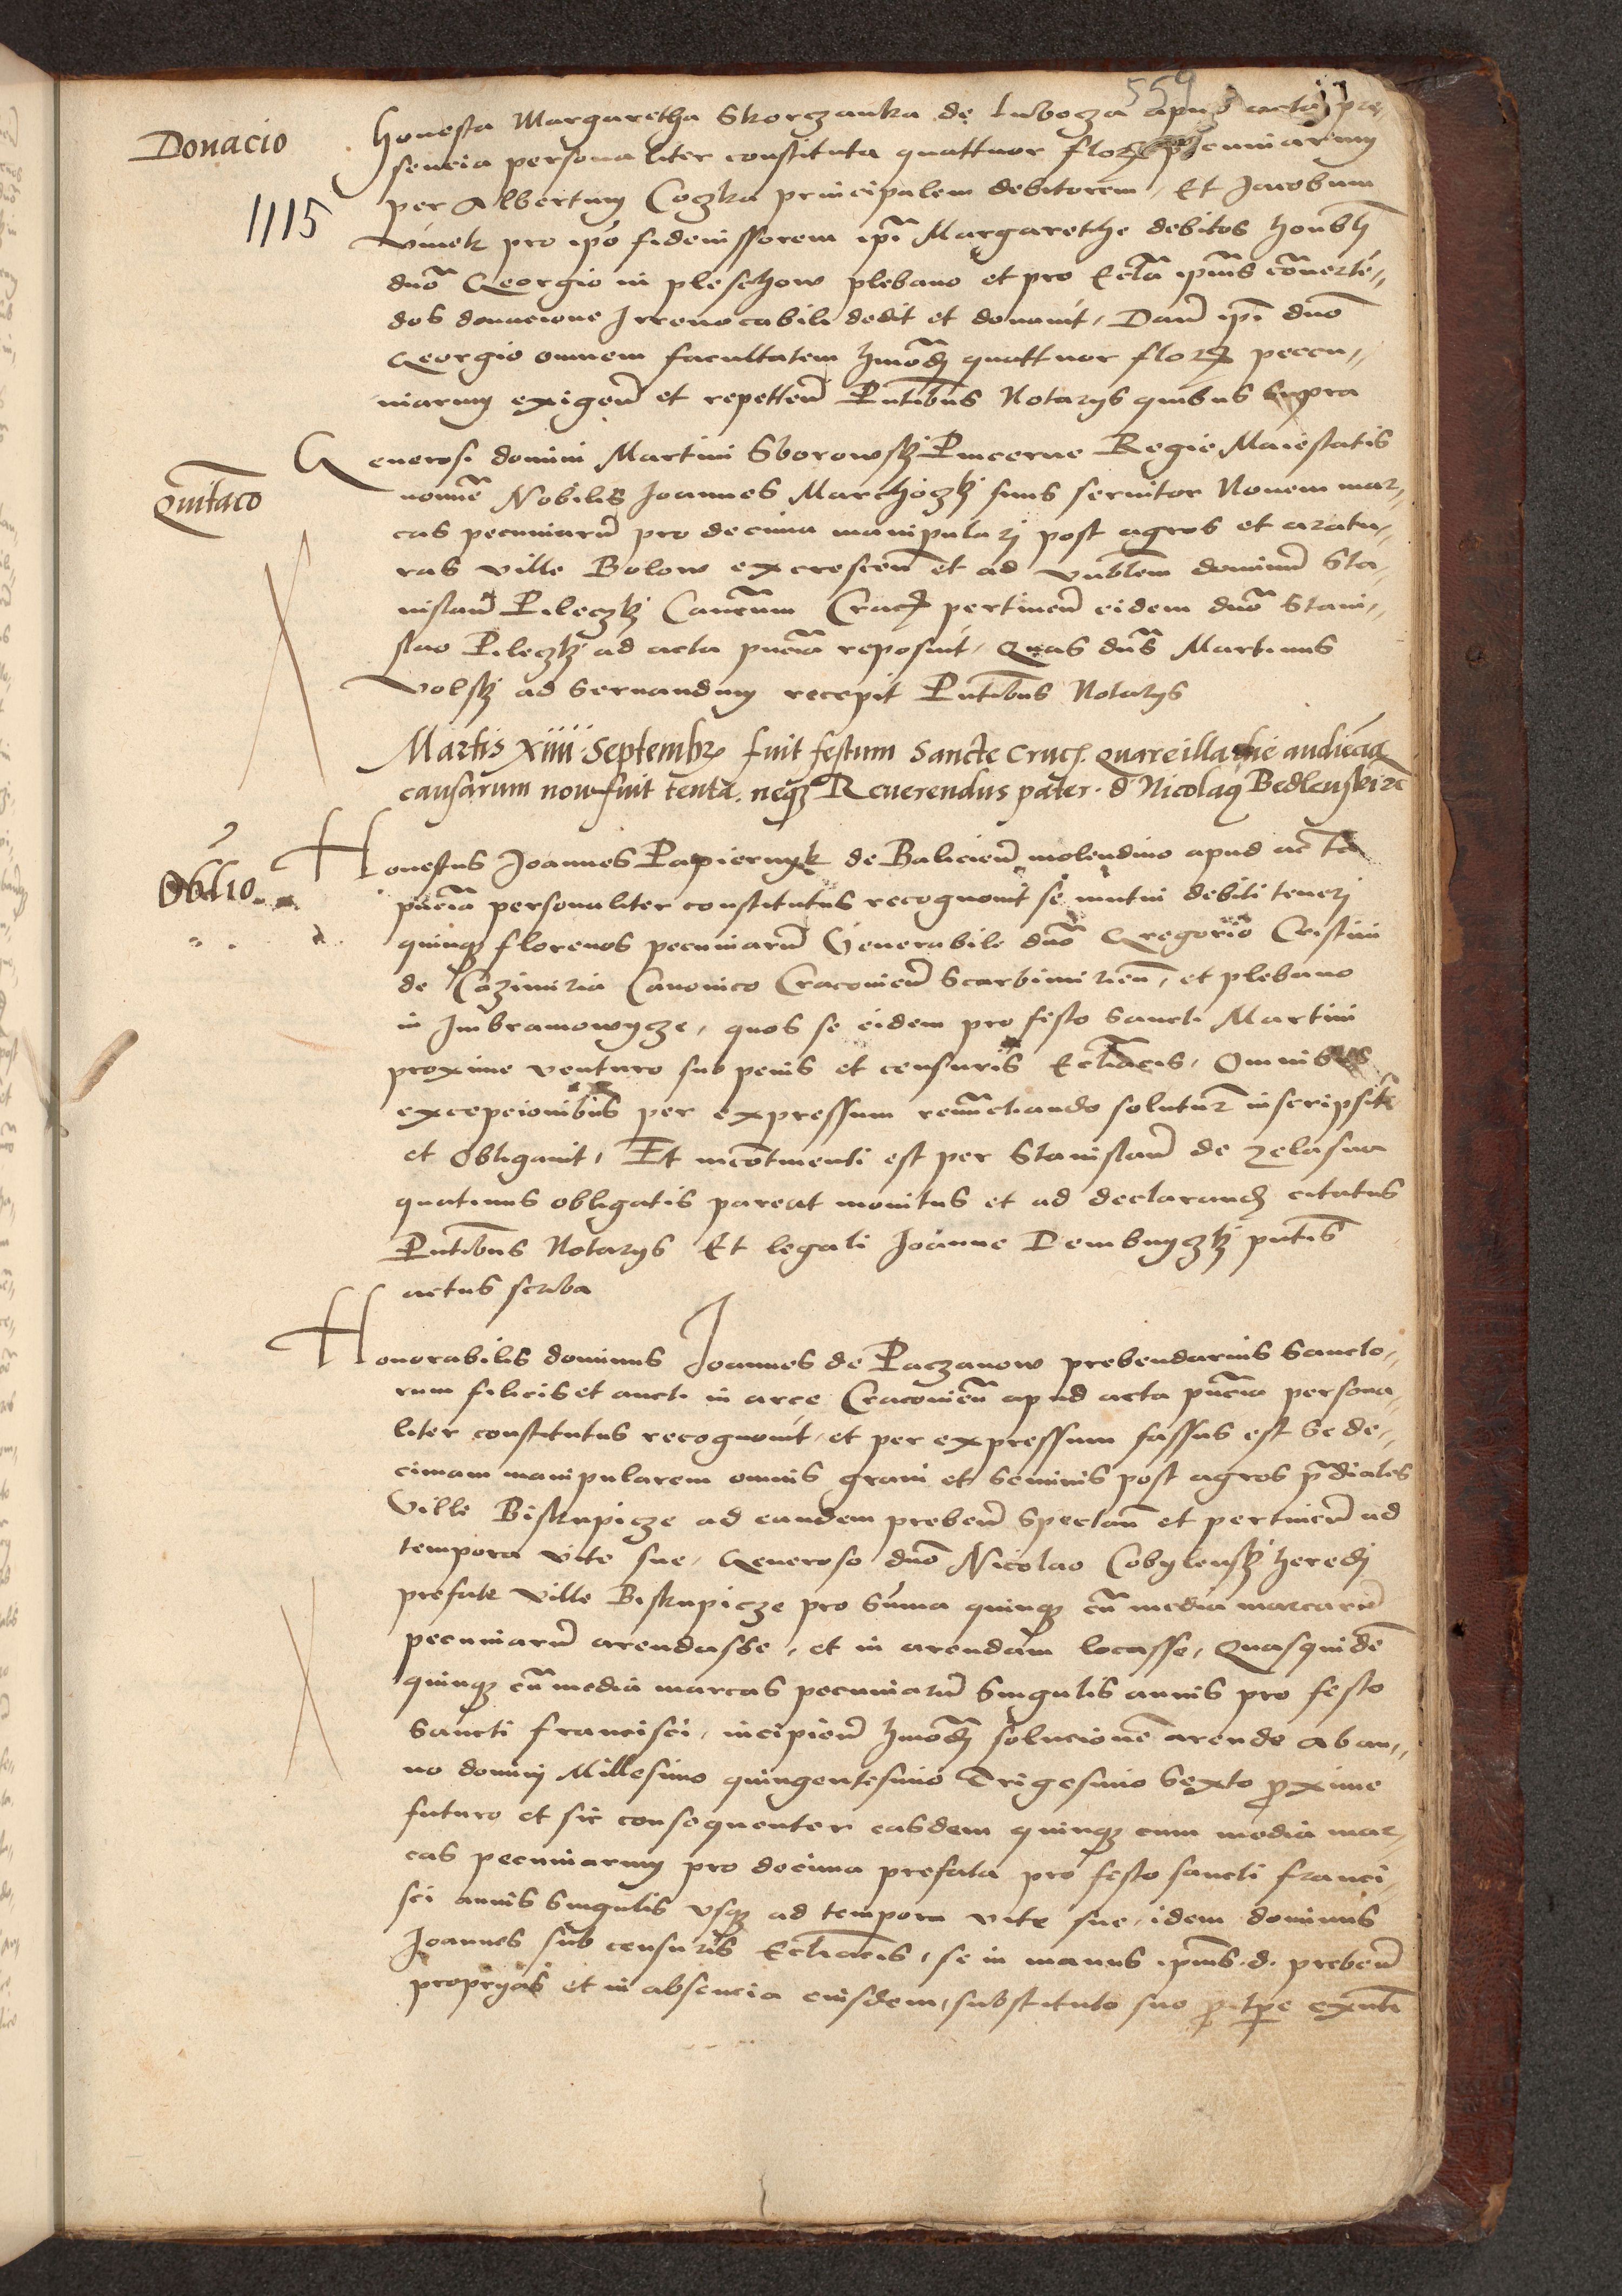 559
Donacio
1115
Honesta Margaretha Skorczanka de Lubocza apud acta pre,,
sencia personaliter constituta quattuor flor pecuniarum
per Albertum Coczka principalem debitorem, Et Jacobum
vinek pro ipo fideiussorem ipi Margarethe debitos honbli
dno Georgio in pleschow plebano et pro Eccla ipius converte,,
dos donacione Irrevocabili dedit et donavit, Dan ipi dno
Georgio omnem facultatem hmodi quattuor flor peccu,,
niarum exigen et repetten Pntibus Notarys quibus supra
Quitaco
Generosi domini Martini Sborowskj Pincerne Regie Maiestatis
nomine Nobilis Joannes Marchoczkj suus servitor Novem mar,,
cas pecuniaru pro decima manipularj post agros et aratu,,
ras ville Bolow excrescen et ad vnblem dominu Sta,,
nislau Pileczkj Cancum Crac pertinen eidem dno Stani,,
slao Pileczkj ad acta pncia reposuit, Quas dns Martinus
volskj ad servandum recepit Pntibus Notarys
Martis xiiii Septembr fuit festum Sancte Crucis. quare illa die audiencia
causarum non fuit tenta. neq Reverendus pater. d Nicolaus Bedlenski etc
Oblio
Honestus Joannes Papiernyk de Balicien molendino apud acta
pncia personaliter constitutus recognovit se mutui debiti tenerj
quinq florenos pecuniaru Venerabili dno Gregorio Cristini
de Cazimiria Canonico Cracovien Scarbimirien, et plebano
in Imbramowycze, quos se eidem pro festo Sancti Martini
proxime venturo sub penis et censuris Ecclaicis, Omnibus
excepcionibus per expressum renunctiando soluturu inscripsit
et obligavit, Et incontinenti est per Stanislau de Zelasna
quatinus obligatis pareat monitus et ad declarand citatus
Pntibus Notarys Et legali Joanne Dembnyczkj pntis
actus scriba
Honorabilis dominus Joannes de Paczanow prebendarius Sancto,,
rum felicis et aucti in arce Cracovien apud acta pncia persona,,
liter constitutus recognovit, et per expressum fassus est Se de,,
cimam manipularem omnis grani et seminis post agros pdiales
Ville Biskupicze ad eandem preben spectan et pertinen ad
tempora vite sue, Generoso dno Nicolao Cobylenskj heredj
prefate ville Biskupicze pro Suma quinq cu media marcaru
pecuniaru arendasse, et in arendam locasse, Quasquide
quinq cu media marcas pecuniaru Singulis annis pro festo
Sancti Francisci, incipien hmodj solucione arende ab an,,
no dominj Millesimo quingentesimo Trigesimo Sexto proxime
futuro et sic consequenter easdem quinq cum media mar,,
cas pecuniarum pro decima prefata pro festo sancti Franci,,
sci annis Singulis vsq ad tempora vite sue, idem dominus
Joannes sub censuris Ecclaicis, se in manus ipius d. preben
propryas et in absencia eiusdem, substituto suo p tpe exnti